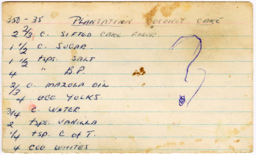 350 - 35 PLANTATION COCONUT CAKE
2 2/3 C. SIFTED CAKE FLOUR
1 1/2 C. SUGAR
1 1/2 tsps. SALT
4 " B.P.
2/3 C. MAZOLA OIL
4 EGG YOLKS
3/4 C. WATER
2 tsps. VANILLA
1/4 tsp. C of T.
4 EGG WHITES
?